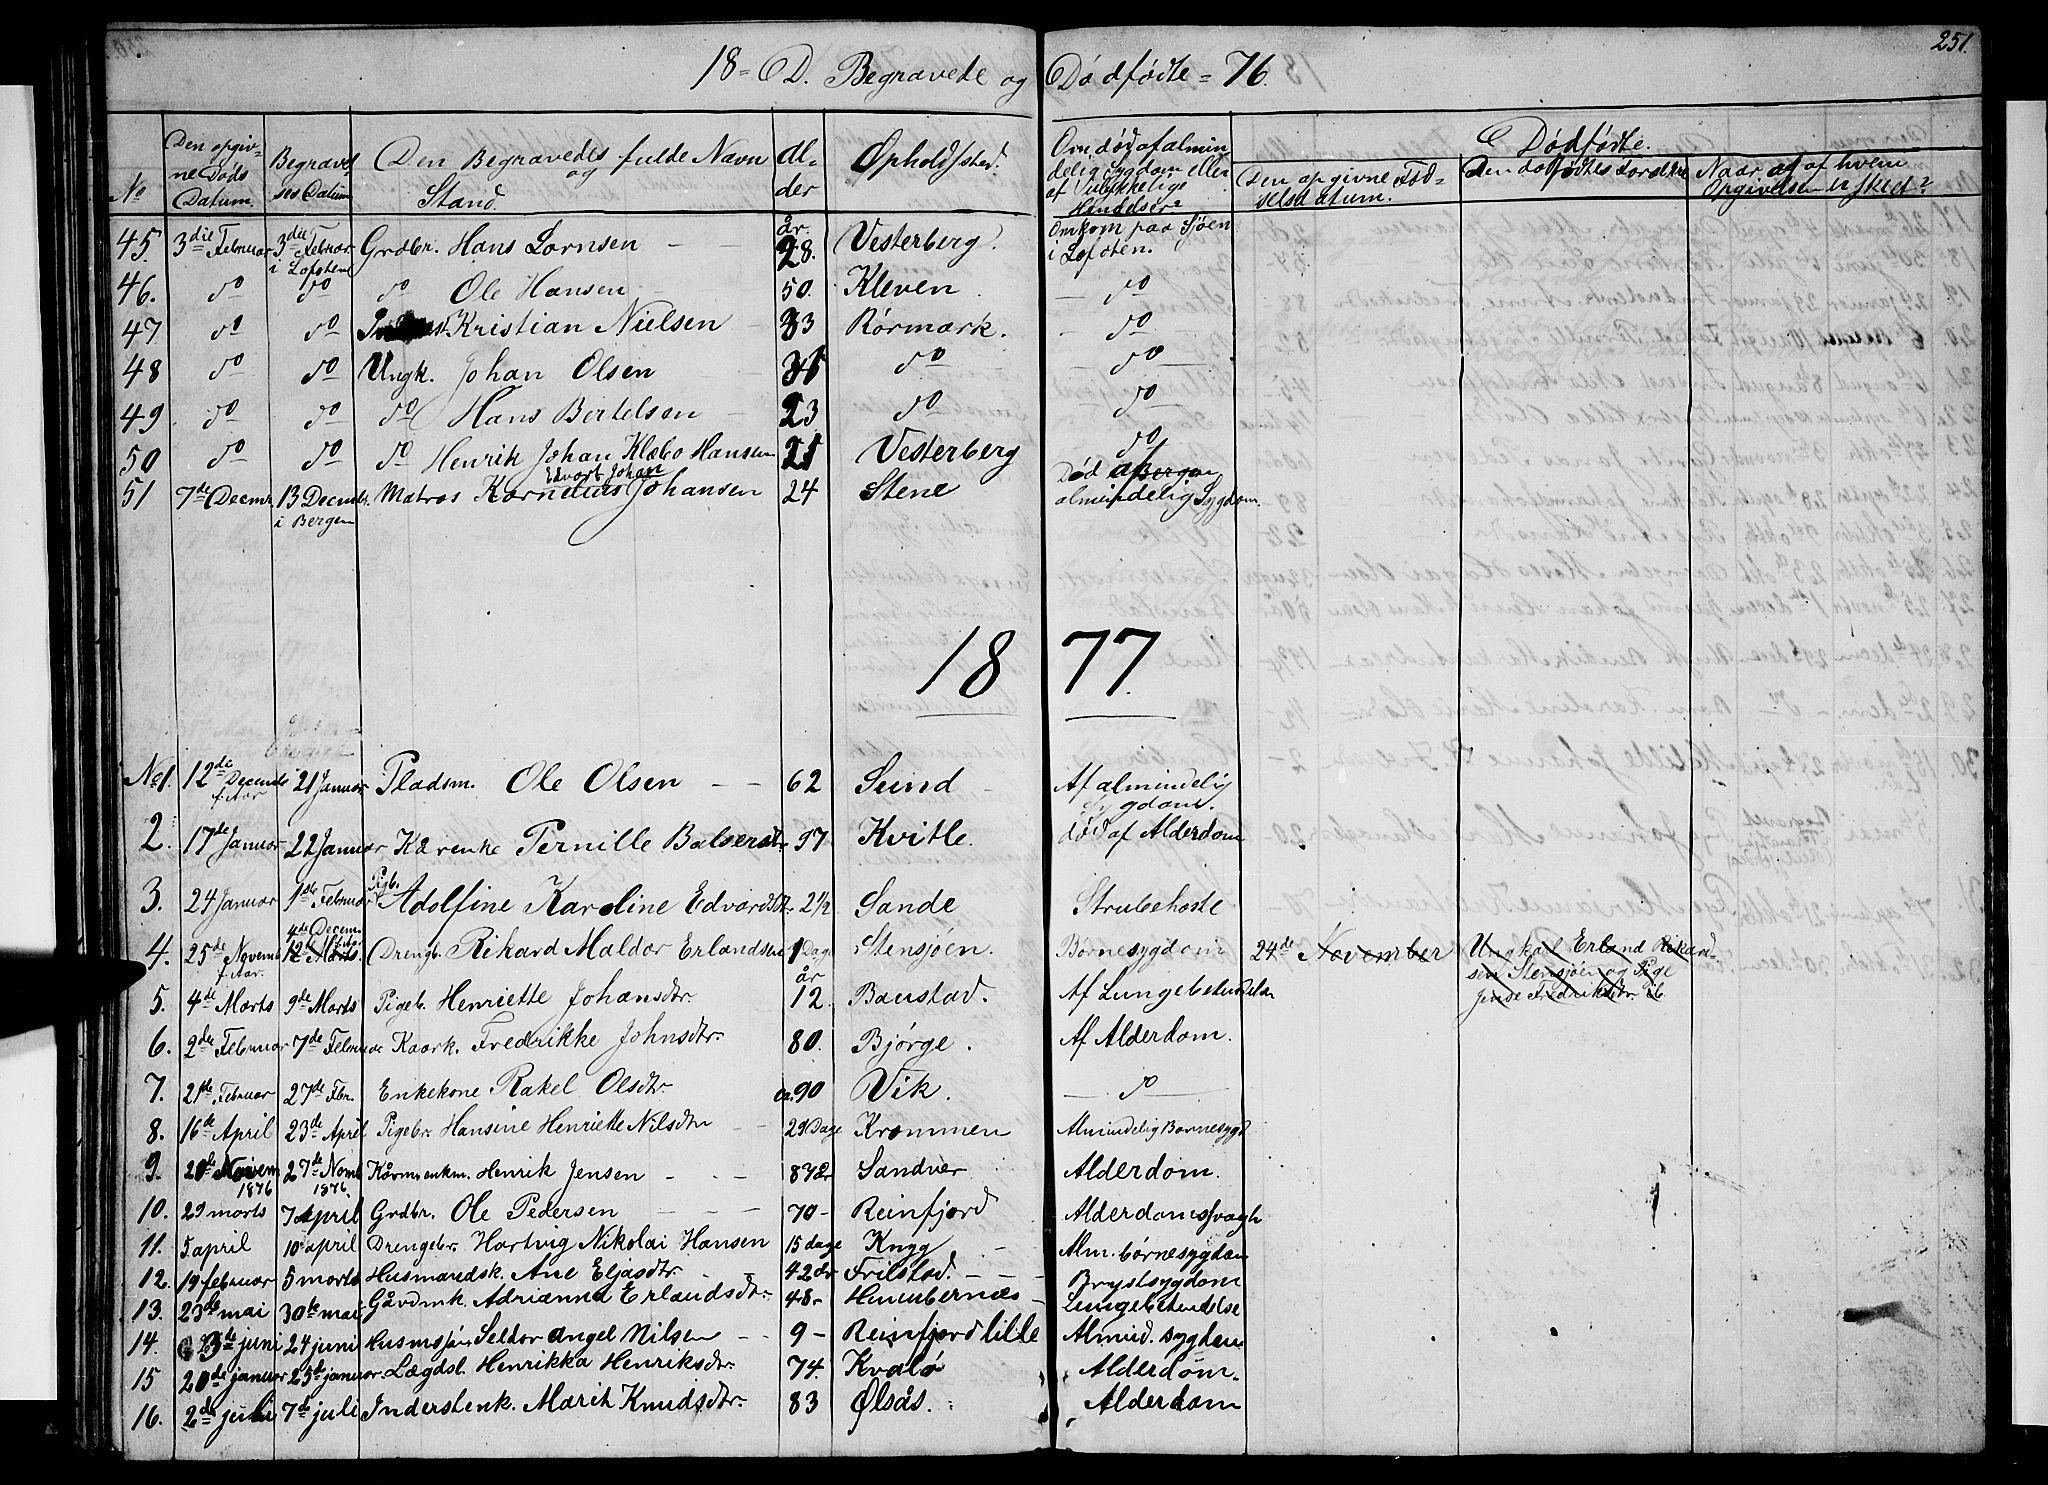 251.
18 = D. Begravede og Dødfødte = 76.
No | Den opgivne Døds Datum. | Begravelses Datum | Den Begravedes fulde Navn og Stand. | Alder | Opholdssted. | Om død af almindelig Sygdom eller af Ulykkelige Hendelser? | Dødfødte. | Den opgivne Fødselsdatum. | Den dødfødtes Forældre | Naar, af hvem Opgivelsen er skeet?
45. 3die Februar 3die Februar i Lofoten Grdbr. Hans Lornsen år. 28. Vesterberg. Omkom paa Sjøen i Lofoten.
46. do do do Ole Hansen 50. Kleven. do
47. do do Kristian Nielsen 33 Rørmark. do
48 do do Ungk. Johan Olsen do do
49 do do do Hans Bertelsen 23 do do
50 do do do Henrik Johan Klæbo Hansen 21 Vesterberg do
51 7de Decmr. 13 Decembr. i Bergen Matros Kornelius Edvart Johan Johansen 24 Stene Død af Bergen almindelig Sygdom.
1877.
No 1. 12de Decembr f. Aar 21 Januar Pladsm. Ole Olsen 62 Sund Af almindelig Sygdom.
2. 17de Januar 22 Januar Kårenke Pernille Balsersdtr. 97 Kvitle. død af Alderdom
3. 24 Januar 1ste Februar Pigb. Adolfine Karoline Edvardsdtr. 2 1/2 Sande Strubehoste
4. 25de Novemb f. Aar. 4de Decem. 12te Marts. Drengb. Rikard Maldor Erlandsen 1 Dage Stensjøen. Børnesygdom 24de November Ungkarl Erland Rikardsen Stensjøen og Pige Jense Fredriksdtr. ib.
5. 4de Marts 9de Marts Pigeb. Henriette Johansdtr. år 12. Baustad. Af Lungebetændelse
6. 2den Februar 7de Februar Kaark. Fredrikke Johnsdtr. 80. Bjørge. Af Alderdom.
7. 21de Februar 27de Fbr. Enkekone Rakel Olsdtr. ca. 90 Vik. do
8. 16de April 23de April Pigebr. Hansine Henriette Nilsdtr 29 Dage Krommen Almindelig Børnesygd
9. 20de Novem 1876 27de Novmb 1876. Kårmenkm. Henrik Jensen 83 år Sandver Alderdom.
10. 29 marts 7 April Grdbr. Ole Pedersen 70 - Reinfjord Alderdomssvagh
11. 5 april 10 april Drengebr. Hartvig Nikolai Hansen 15 dage Knyg Alm. børnesygdom
12. 19 februar 5 marts Husmandsk. Ane Eljasdtr. 42 år Frilstad. Brystsygdom
13. 23de mai 30te mai Gårdmk. Adrianna Erlandsdtr. 48 - Hummbernæs Lungebetændelse
14. 13de juni 24 juni Husmsøn Seldor Angel Nilsen 9 - Reinfjord lille Almind. sygdom
15 20de januar 25de januar Lægdsl. Henrikka Henriksdtr. 74. Kvalø Alderdom.
16. 2den juli 7de juli Inderstenk. Marit Knudsdtr. 83 Ølsås. Alderdom